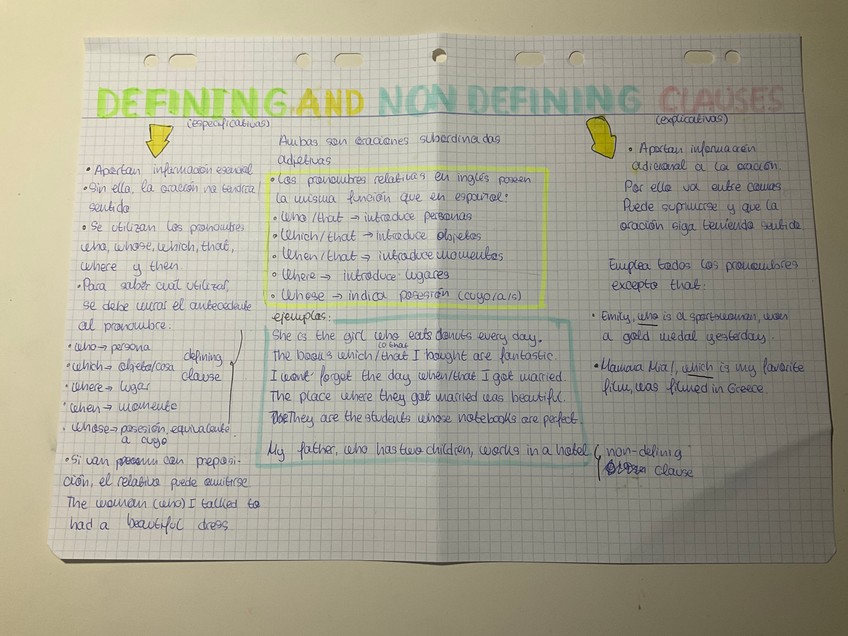 DEFINING AND NON DEFINING CLAUSES
(especificativas)
• Aportan información esencial
• Sin ella, la oración no tendría
sentido
• Se utilizan los pronombres
who, whose, which, that,
where y then
• Para saber cual utilizar,
se debe mirar el antecedente
al pronombre.
• who → persona
• which → objeto/cosa
• where → lugar
• when → momento
• whose → posesión, equivalente
a cuyo
defining
clause
• Si van con preposi-
ción, el relativo puede omitirse
The woman (who) I talked to
had a beautiful dress
Ambas son oraciones subordinadas
adjetivas
• Los pronombres relativos en inglés poseen
la misma función que en español:
• Who/that → introduce personas
• Which/that → introduce objetos
• When/that → introduce momentos
• Where → introduce lugares
• Whose → indica posesión (cuyo/a/s)
ejemplos:
She is the girl who eats donuts every day.
The books which/that I bought are fantastic.
I won't forget the day when/that I got married.
The place where they got married was beautiful.
They are the students whose notebooks are perfect.
My father, who has two children, works in a hotel
non-defining
clause
(explicativas)
• Aportan información
adicional a la oración.
Por ello va entre comas
Puede suprimirse y que la
oración siga teniendo sentido
Emplea todos los pronombres
excepto that:
• Emily, who is a sportswoman, won
a gold medal yesterday.
• Mamma Mia!, which is my favorite
film, was filmed in Greece.